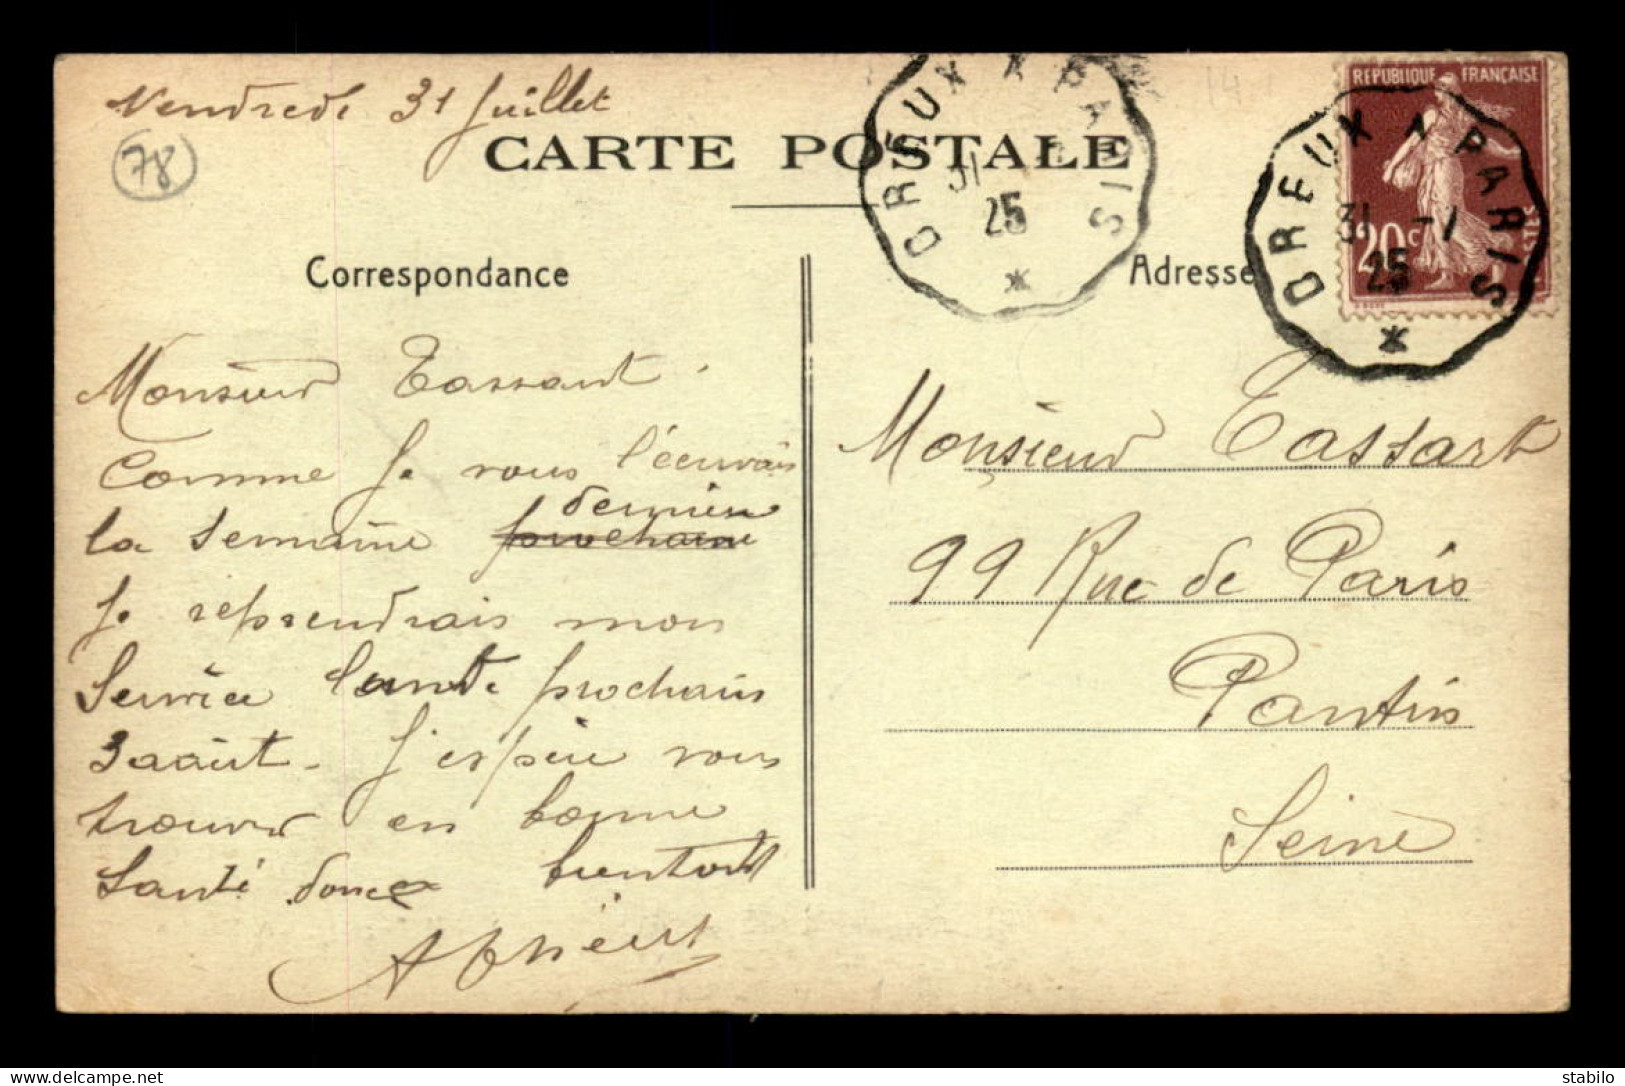 Vendredi 31 Juillet
78
CARTE POSTALE
DREUX A PARIS
31
25
REPUBLIQUE FRANÇAISE
20c
DREUX A PARIS
31 -1
25
Correspondance
Adresse
Monsieur Tassant.
Comme Je vous l'écrivais
dernière
la Semaine prochaine
Je reprendrais mon
Service Lundi prochain
3 août. J'espère vous
trouver en bonne
Santé donc bientôt
Monsieur Tassart
99 Rue de Paris
Pantin
Seine
delcampe.net
stabilo